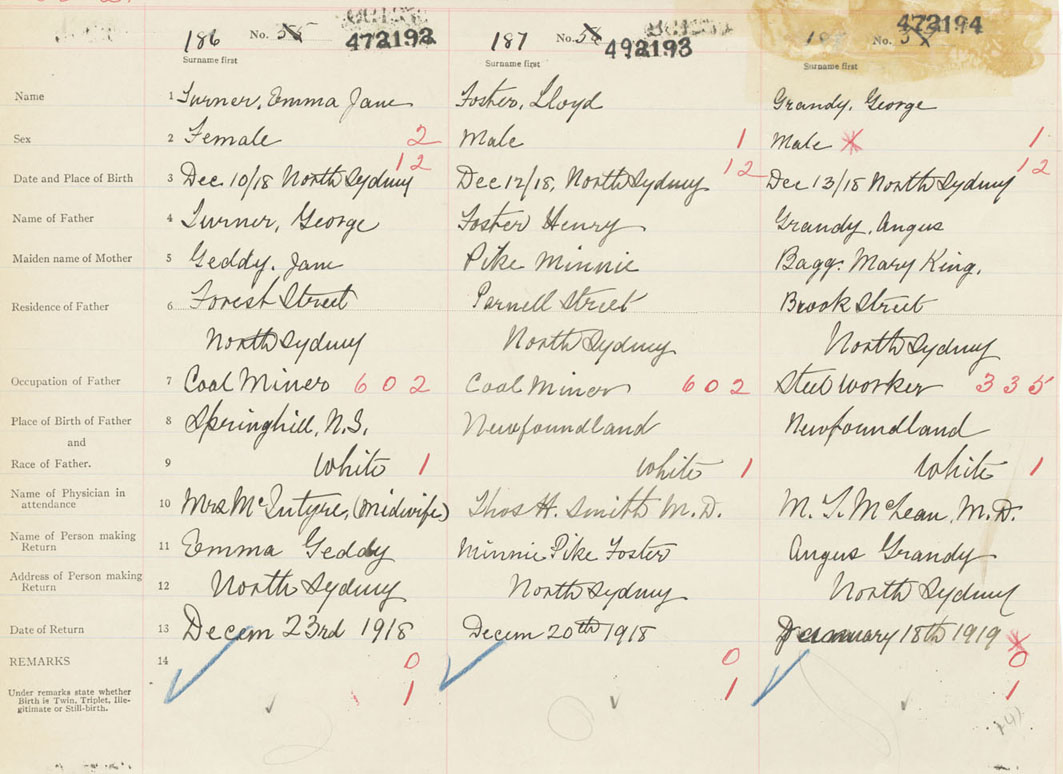 186 No. 472192
187 No. 58 492193
No. 472194
Surname first
Surname first
Surname first
Name 1 Turner, Emma Jane Foster, Lloyd Grandy, George
Sex 2 Female 2 Male 1 Male 1
12 12 12
Date and Place of Birth 3 Dec 10/18 North Sydney Dec 12/18, North Sydney Dec 13/18 North Sydney
Name of Father 4 Turner, George Foster Henry Grandy, Angus
Maiden name of Mother 5 Geddy, Jane Pike Minnie Bagg. Mary King.
Residence of Father 6 Forest Street Parnell Street Brook Street
North Sydney North Sydney North Sydney
Occupation of Father 7 Coal Miner 602 Coal Miner 602 Steel worker 335
Place of Birth of Father 8 Springhill, N.S. Newfoundland Newfoundland
and
Race of Father. 9 White 1 White 1 White 1
Name of Physician in
attendance 10 Mrs McIntyre, (Midwife) Thos H. Smith M.D. M. T. McLean, M.D.
Name of Person making
Return 11 Emma Geddy Minnie Pike Foster Angus Grandy
Address of Person making
Return 12 North Sydney North Sydney North Sydney
Date of Return 13 Decem 23rd 1918 Decem 20th 1918 January 18th 1919
REMARKS 14 0 0 0
Under remarks state whether
Birth is Twin, Triplet, Ille-
gitimate or Still-birth. 1 1 1